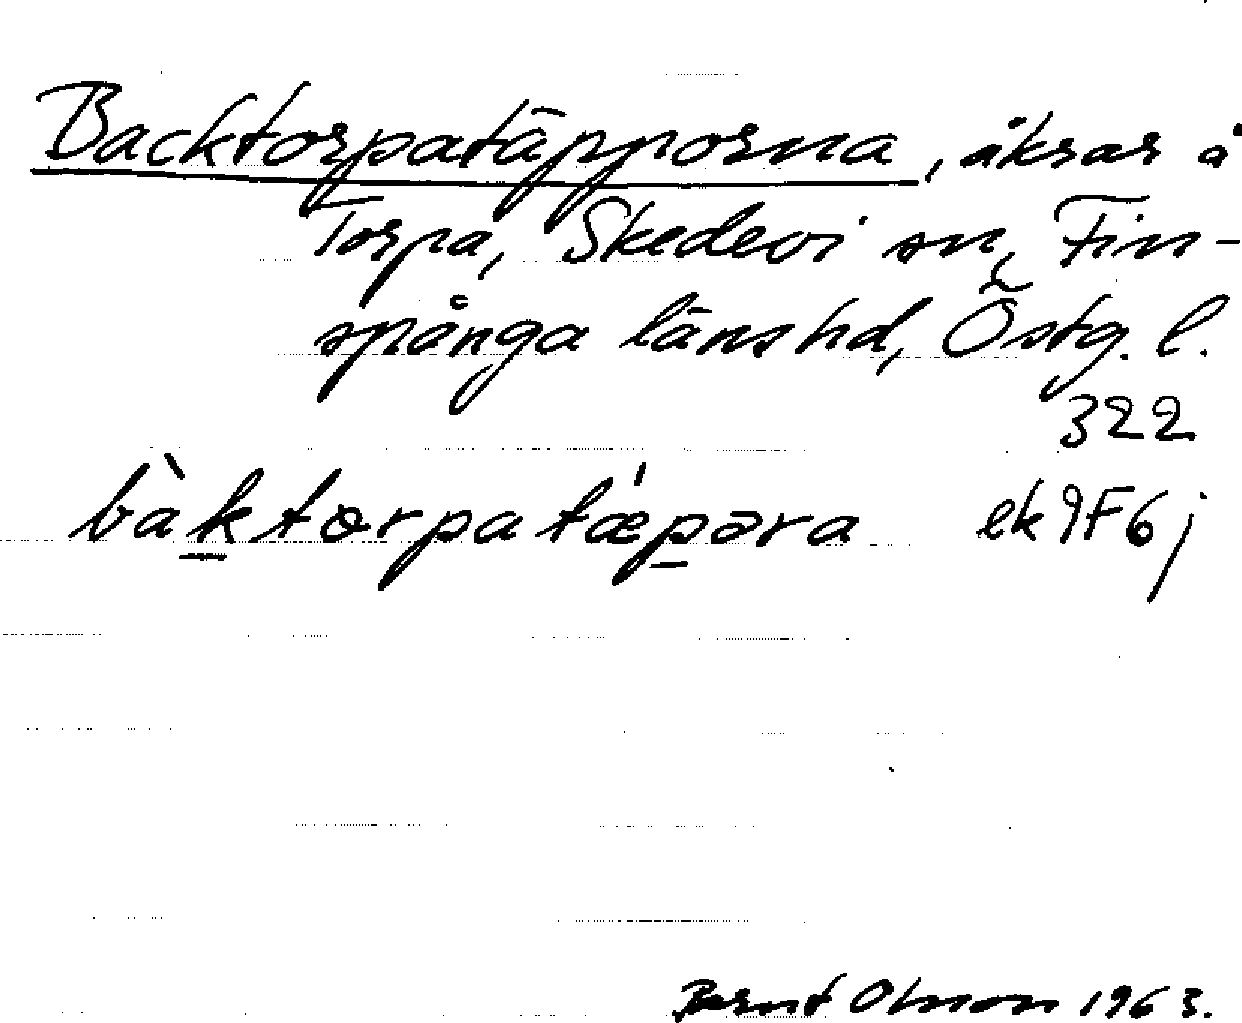 Backtorpatäpporna, åkrar å
Torpa, Skedevi sn, Fin-
spånga länshd, Östg. l.
322
bàktorpatǽpəra ek 9F6j
Bernt Olsson 1963.